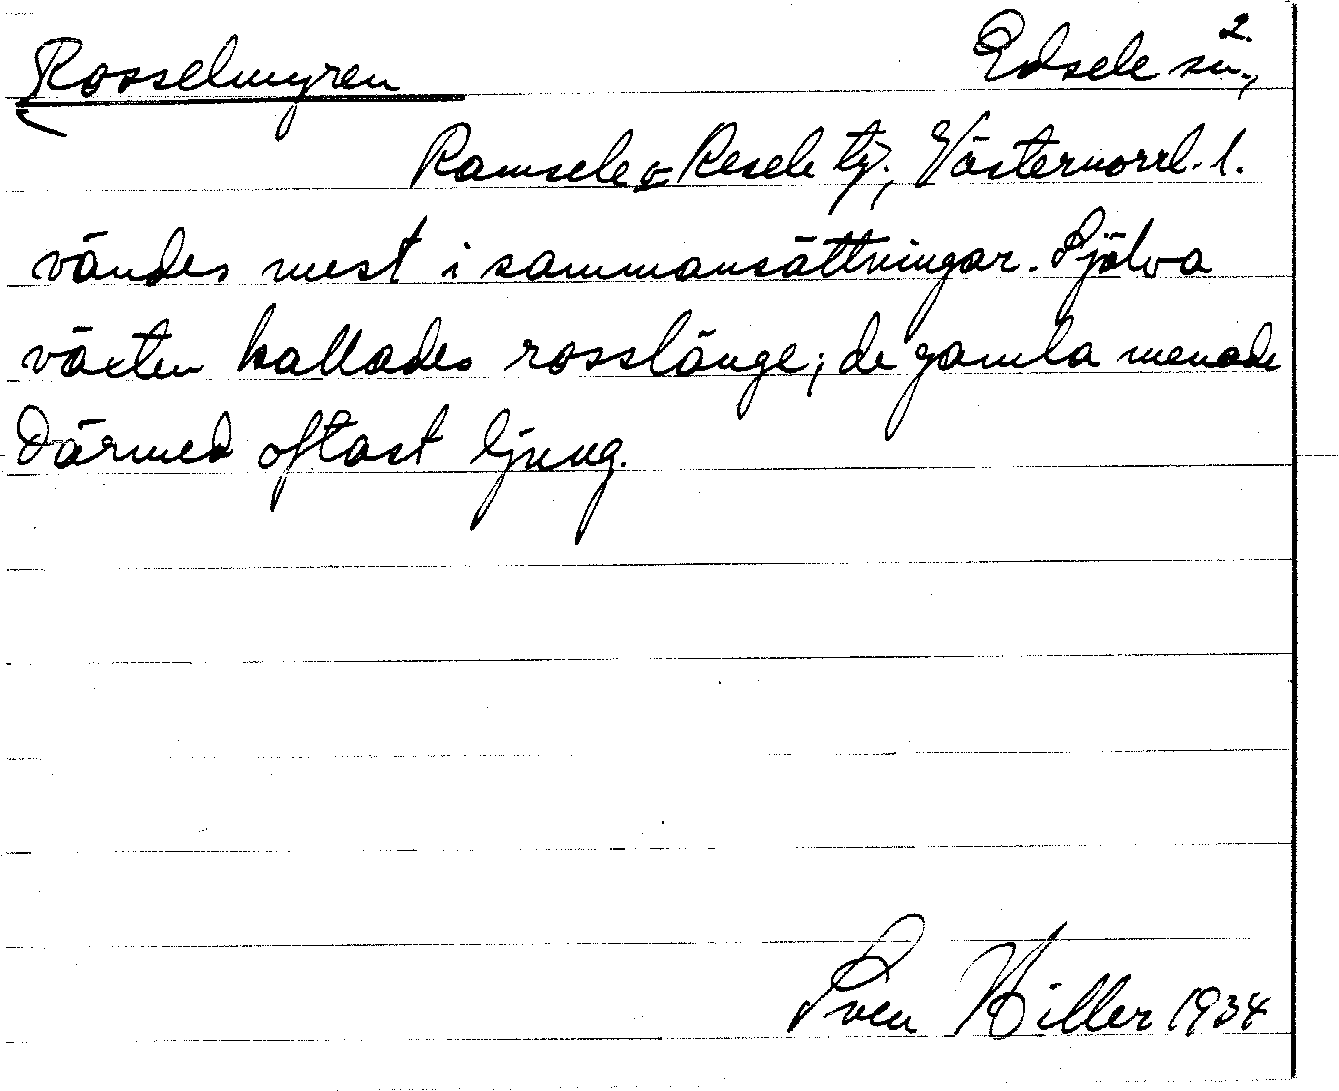 2.
Rosselmyren Edsele sn.,
Ramsele & Resele tg., Västernorrl. l.
vändes mest i sammansättningar. Själva
växten kallades rosslänge; de gamla menade
därmed oftast ljung.
Sven Hiller 1934